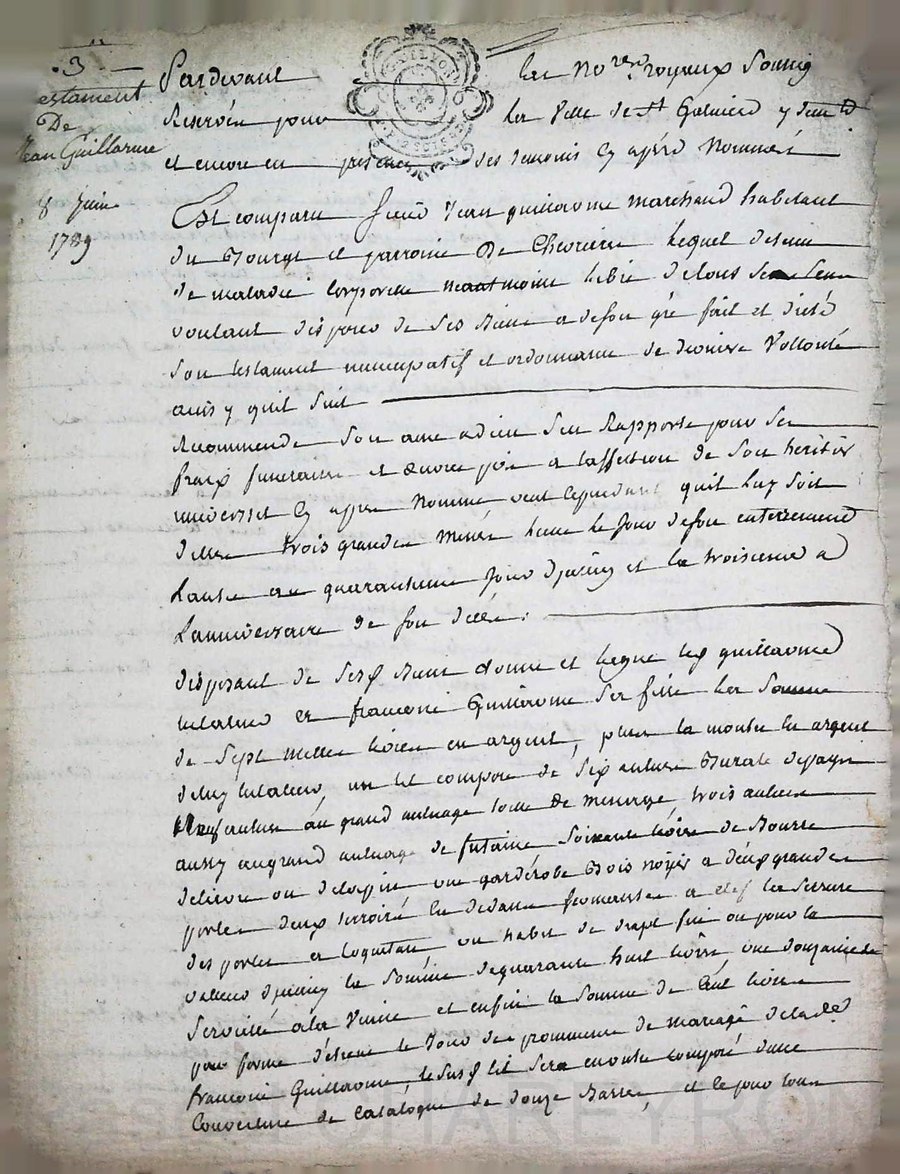 3
Testament
De
Jean Guillaume
8 Juin
1789
Pardevant les No.res royaux Soussig
Reservés pour la Ville de St Galmier y demt
et encore en presence des temoins cy après Nommés
Est comparu Sieur Jean guillaume marchand habitant
du Bourg et parroisse De Chevrieres Lequel detenu
de maladie corporelle neantmoins libre de tous ses sens
voulant disposer de ses Biens a de son gré fait et dicté
Son testament nuncupatif et ordonnance de derniere Vollonté
ainsy quil suit
Recommende Son ame a dieu Sen Rapporte pour Ses
fraix funeraires et œuvres pies a laffection de Son heritier
universel Cy apres Nommé veut cependant quil luy soit
dittes trois grandes Messes lune le jour de son enterrement
Lautre au quarantieme jour dycelluy et la troisieme a
Lanniversaire de son décés :
disposant de Sesd Biens donne et legue a guillaume
et francoise Guillaume Sa fille la Somme
de Sept mille livres en argent, plus la montre en argent
un lit composé de Six aulnes
neuf aulnes au grand aulnage toille de menage, trois aulnes
aussy au grand aulnage de futaine Soixante livres de Bourre
ou une garderobe Bois noyer a deux grandes
portes deux tirroirs en dedans fermantes a clef la serrure
des portes et loquetau un habit de drapt fin ou pour la
valleur dycelluy la Somme de quarante huit livres, une douzaine de
Serviettes a la Venise et enfin la Somme de Cent livres
pour forme d'etrene le jour de promesse de mariage de lad.
francoise Guillaume, le Susd lit Sera en outre composé dune
Couverture de Catalogne de douze Barres, et le pour tour
CHAREYRON